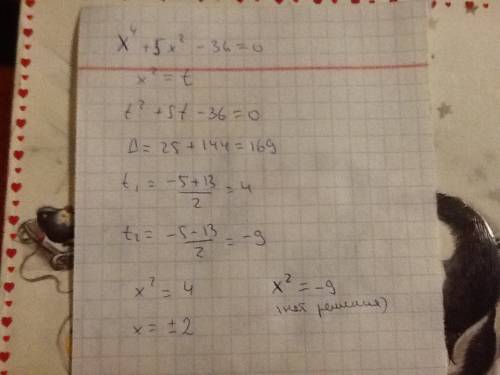 x⁴ + 5x² - 36 = 0
x² = t
t² + 5t - 36 = 0
D = 25 + 144 = 169
t₁ = (-5+13)/2 = 4
t₂ = (-5-13)/2 = -9
x² = 4
x² = -9
(нет решения)
x = ±2